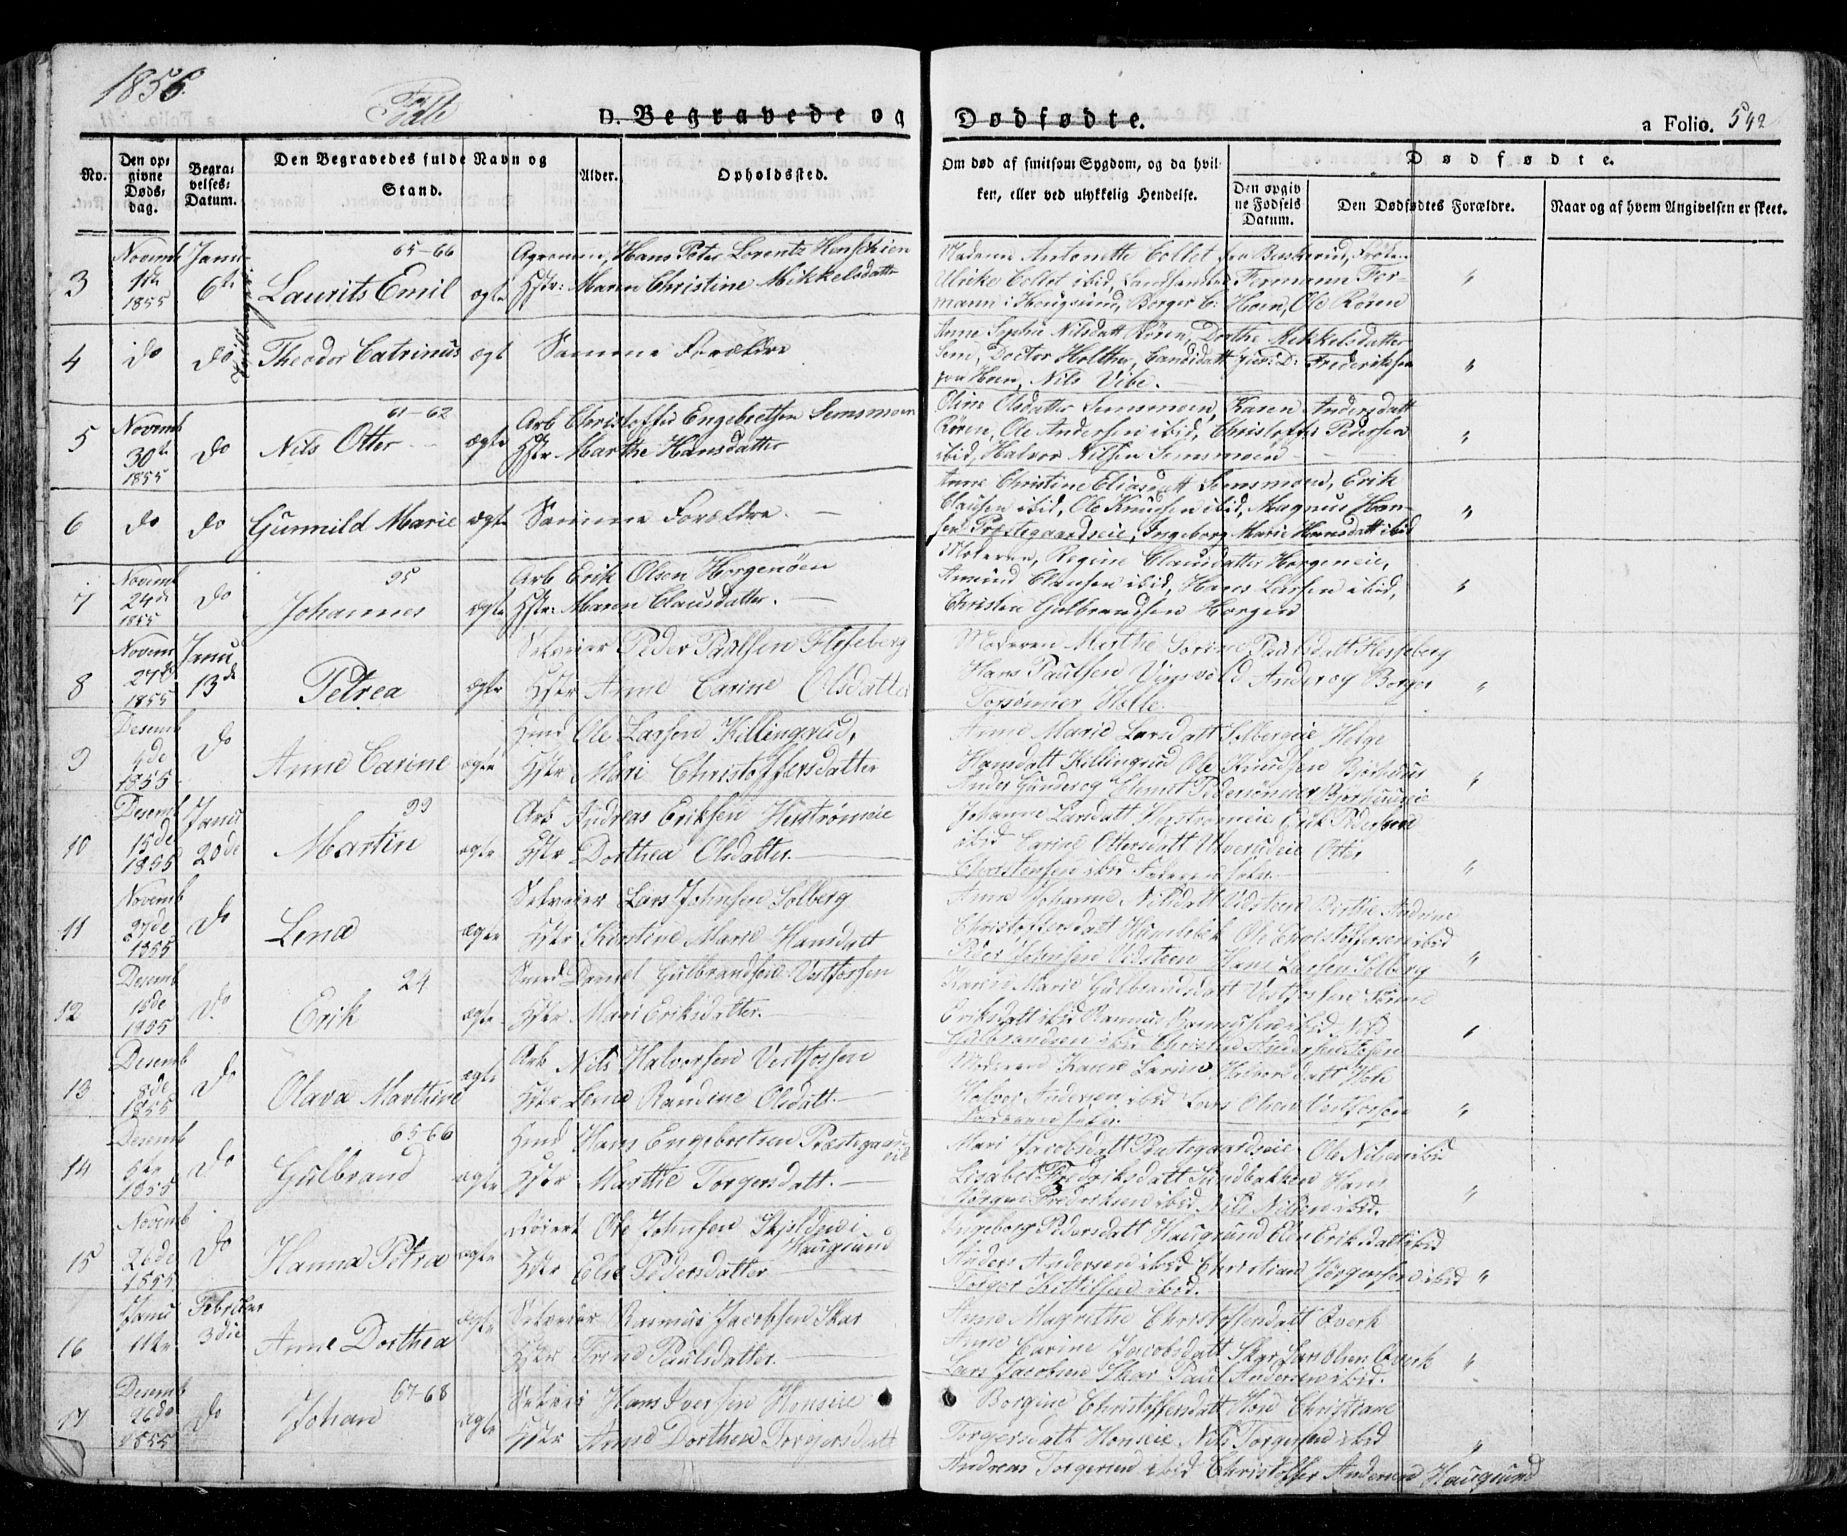 1856.
Født
D. Begravede og Dødfødte.
a Folio. 542
No.
Den op-
givne
Døds-
dag.
Begra-
velses-
Datum.
Den Begravedes fulde Navn og
Stand.
Alder.
Opholdssted.
Om død af smitsom Sygdom, og da hvil-
ken, eller ved ulykkelig Hendelse.
Dødfødte.
Den opgiv
ne Fødsels
Datum.
Den Dødfødtes Forældre.
Naar og af hvem Angivelsen er skeet.
3
Novemb
1855
Janu
6te
65-66
Laurits Emil
ægte
Agronom, Hans Peter Lorents
Hstr: Maren Christine Mikkelsdatter
Madame Antonette Collet fra Buskerud,
Ulrike Collet ibid,
mann i Hougsund, Borger C. Horn, Ole Røren
4
do
do
Theodor Catrinus
ægt
Samme Forældre
Anne Sophie Nilsdatt Røren, Dorthe Mikkelsdatter
Sem, Doctor Holther, Candidatt Juris D: Frederiksen
fra Horn, Nils Vibe.
5
Novemb
30te
1855
do
61-62
Nils Otter
ægte
Arb Christoffer Engebretsen Semsmoen
Hstr Marthe Hansdatter
Oline Olsdatter Semsmoen, Karen Andersdatt
Røren, Ole Andersen ibid, Christoffer Pedersen
ibid, Halvor Nilsen Semsmoen
6
do
do
Gunnild Marie
ægte
Samme Forældre.
Anne Christine Eliasdatt Semsmoen, Erik
Clausen ibid, Ole Knudsen ibid, Magnus Han-
sen Præstegaardseie, Ingeborg Marie Hansdatt ibid
7
Novemb
24de
1855
do
95
Johannes
ægte
Arb Erik Olsen Horgenøen
Hstr: Maren Clausdatter.
Moderen, Regine Clausdatter Horgeneie,
Amund Clausen ibid, Hans Larsen ibid,
Christen Gulbrandsen Horgen
8
Novem
27de
1855
Janu
13de
Petrea
ægte
Selveier Peder Paulsen Flesseberg
Hstr Anne Carine Olsdatter
Moderen Marthe Sorine Pedersdatt Flesseberg
Hans Paulsen Anders og Borger
Torsønner
9
Desemb
1855
do
Anne Carine
ægte
Hmd Ole Larsen Killingrud,
Hstr Mari Christoffersdatter
Anne Marie Larsdatt Solbergeie Helge
Hansdatt Killingrud Ole Knudsen Bjørhuus
10
Desemb
15de
1855
Janu
20de
99
Martin
ægte
Arb Andreas Eriksen
Hstr Dorthea Olsdatter.
Johanne Larsdatt Erik Pedersen
ibid Carine Ottersdatt Otter
Christensen ibid Faderen selv.
11
Novemb
27de
1855
do
Lena
ægte
Selveier Lars Johnsen Solberg
Hstr Kirstine Marie Hansdatt
Anne Johanne Nilsdatt Vidsteen Birthe Andrine
Christoffersdatt Ole Christoffersen ibid
Peder Johnsen Vidsteen Hans Larsen Solberg
12
Desemb
18de
1855
do
24
Erik
ægte
Smed Daniel Gulbrandsen Vestfossen
Hstr Mari Eriksdatter.
Karen Marie Gulbrandsdatt Vestfossen
Eriksdatt ibid Rasmus Rasmussen ibid Nils
Gulbrandsen ibid Christen Andersen
13
Desemb
8de
1855
do
Olava Marthine
ægte
Arb Nils Halvorsen Vestfossen
Hstr Lena Randine Olsdatt.
Moderen Karen Larine Halvorsdatt Hole
Halvor Andersen ibid Lars Olsen Vestfossen
Faderen selv.
14
Desemb
5te
1855
do
65-66
Gulbrand
ægte
Hmd Hans Engebretsen Præstegaards
eie
Hstr Marthe Torgersdatt.
Mari Jacobsdatt Præstegaardseie Ole Nilsen ibid
Lisabet Fredriksdatt Sundbakken Hans
Fredriksen ibid Nils Nilsen ibid.
15
Novemb
26de
1855
do
Hanna Petra
ægte
Ole Johnsen i
Hougsund
Hstr Elie Pedersdatter
Ingeborg Pedersdatt Hougsund Elen Eriksdatt ibid
Anders Andersen ibid Christian Jørgensen ibid
Torger Kittilsen ibid.
16
Janu
11te
Februar
3die
Anne Dorthea
ægte
Selveier Rasmus Jacobsen Skar
Hstr Trine Paulsdatter.
Anne Magrethe Christoffersdatt Qverk
Anne Carine Jacobsdatt Skar Jan Olsen Qverk
Lars Jacobsen Skar Paul Andersen ibid.
17
Desemb
26de
1855
do
67-68
Johan
ægte
Hans Iversen Honseie
Hstr Anne Dorthea Torgersdatt
Borgine Christoffersdatt Christiane
Torgersdatt Honseie Nils Torgersen ibid
Andreas Torgersen ibid Christoffer Andersen Hougsund